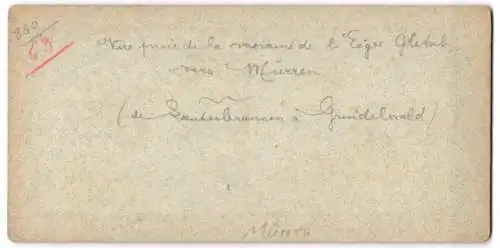 840
Vue prise de la moraine de l'Eiger Gletsch
vers Mürren
(de Lauterbrunnen à Grindelwald)
Mürren